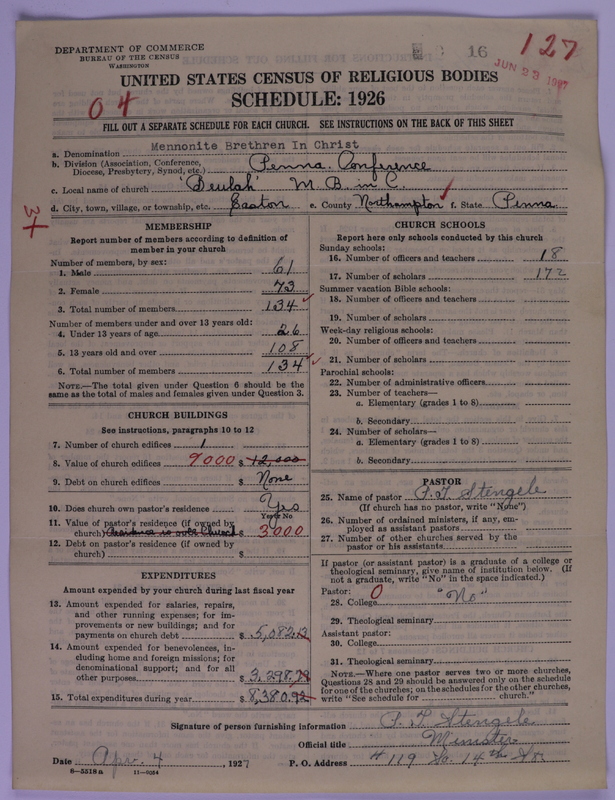 DEPARTMENT OF COMMERCE
BUREAU OF THE CENSUS
WASHINGTON
16
127
JUN 23 1927
UNITED STATES CENSUS OF RELIGIOUS BODIES
SCHEDULE: 1926
04
FILL OUT A SEPARATE SCHEDULE FOR EACH CHURCH. SEE INSTRUCTIONS ON THE BACK OF THIS SHEET
a. Denomination Mennonite Brethren In Christ
b. Division (Association, Conference, Diocese, Presbytery, Synod, etc.) Penna. Conference
c. Local name of church "Beulah" M. B. in C.
d. City, town, village, or township, etc. Easton e. County Northampton f. State Penna.
34
MEMBERSHIP
Report number of members according to definition of
member in your church
Number of members, by sex:
1. Male 61
2. Female 73
3. Total number of members 134
Number of members under and over 13 years old:
4. Under 13 years of age 26
5. 13 years old and over 108
6. Total number of members 134
NOTE.—The total given under Question 6 should be the
same as the total of males and females given under Question 3.
CHURCH BUILDINGS
See instructions, paragraphs 10 to 12
7. Number of church edifices 1
8. Value of church edifices 9000 $ 12,000
9. Debt on church edifices $ None
10. Does church own pastor's residence Yes
Yes or No
11. Value of pastor's residence (if owned by
church) Residence is over Church $ 3000
12. Debt on pastor's residence (if owned by
church) $
EXPENDITURES
Amount expended by your church during last fiscal year
13. Amount expended for salaries, repairs,
and other running expenses; for im-
provements or new buildings; and for
payments on church debt $ 5,082.13
14. Amount expended for benevolences, in-
cluding home and foreign missions; for
denominational support; and for all
other purposes $ 3,298.79
15. Total expenditures during year $ 8,380.92
CHURCH SCHOOLS
Report here only schools conducted by this church
Sunday schools:
16. Number of officers and teachers 18
17. Number of scholars 172
Summer vacation Bible schools:
18. Number of officers and teachers
19. Number of scholars
Week-day religious schools:
20. Number of officers and teachers
21. Number of scholars
Parochial schools:
22. Number of administrative officers
23. Number of teachers—
a. Elementary (grades 1 to 8)
b. Secondary
24. Number of scholars—
a. Elementary (grades 1 to 8)
b. Secondary
PASTOR
25. Name of pastor P. T. Stengele
(If church has no pastor, write "None")
26. Number of ordained ministers, if any, em-
ployed as assistant pastors
27. Number of other churches served by the
pastor or his assistants
If pastor (or assistant pastor) is a graduate of a college or
theological seminary, give name of institution below. (If
not a graduate, write "No" in the space indicated.)
Pastor: 0
28. College "No"
29. Theological seminary
Assistant pastor:
30. College
31. Theological seminary
NOTE.—Where one pastor serves two or more churches,
Questions 28 and 29 should be answered only on the schedule
for one of the churches; on the schedules for the other churches,
write "See schedule for church."
Signature of person furnishing information P. T. Stengele
Official title Minister
Date Apr. 4, 1927 P. O. Address # 119 So. 14th St.
8—5518a 11—9054